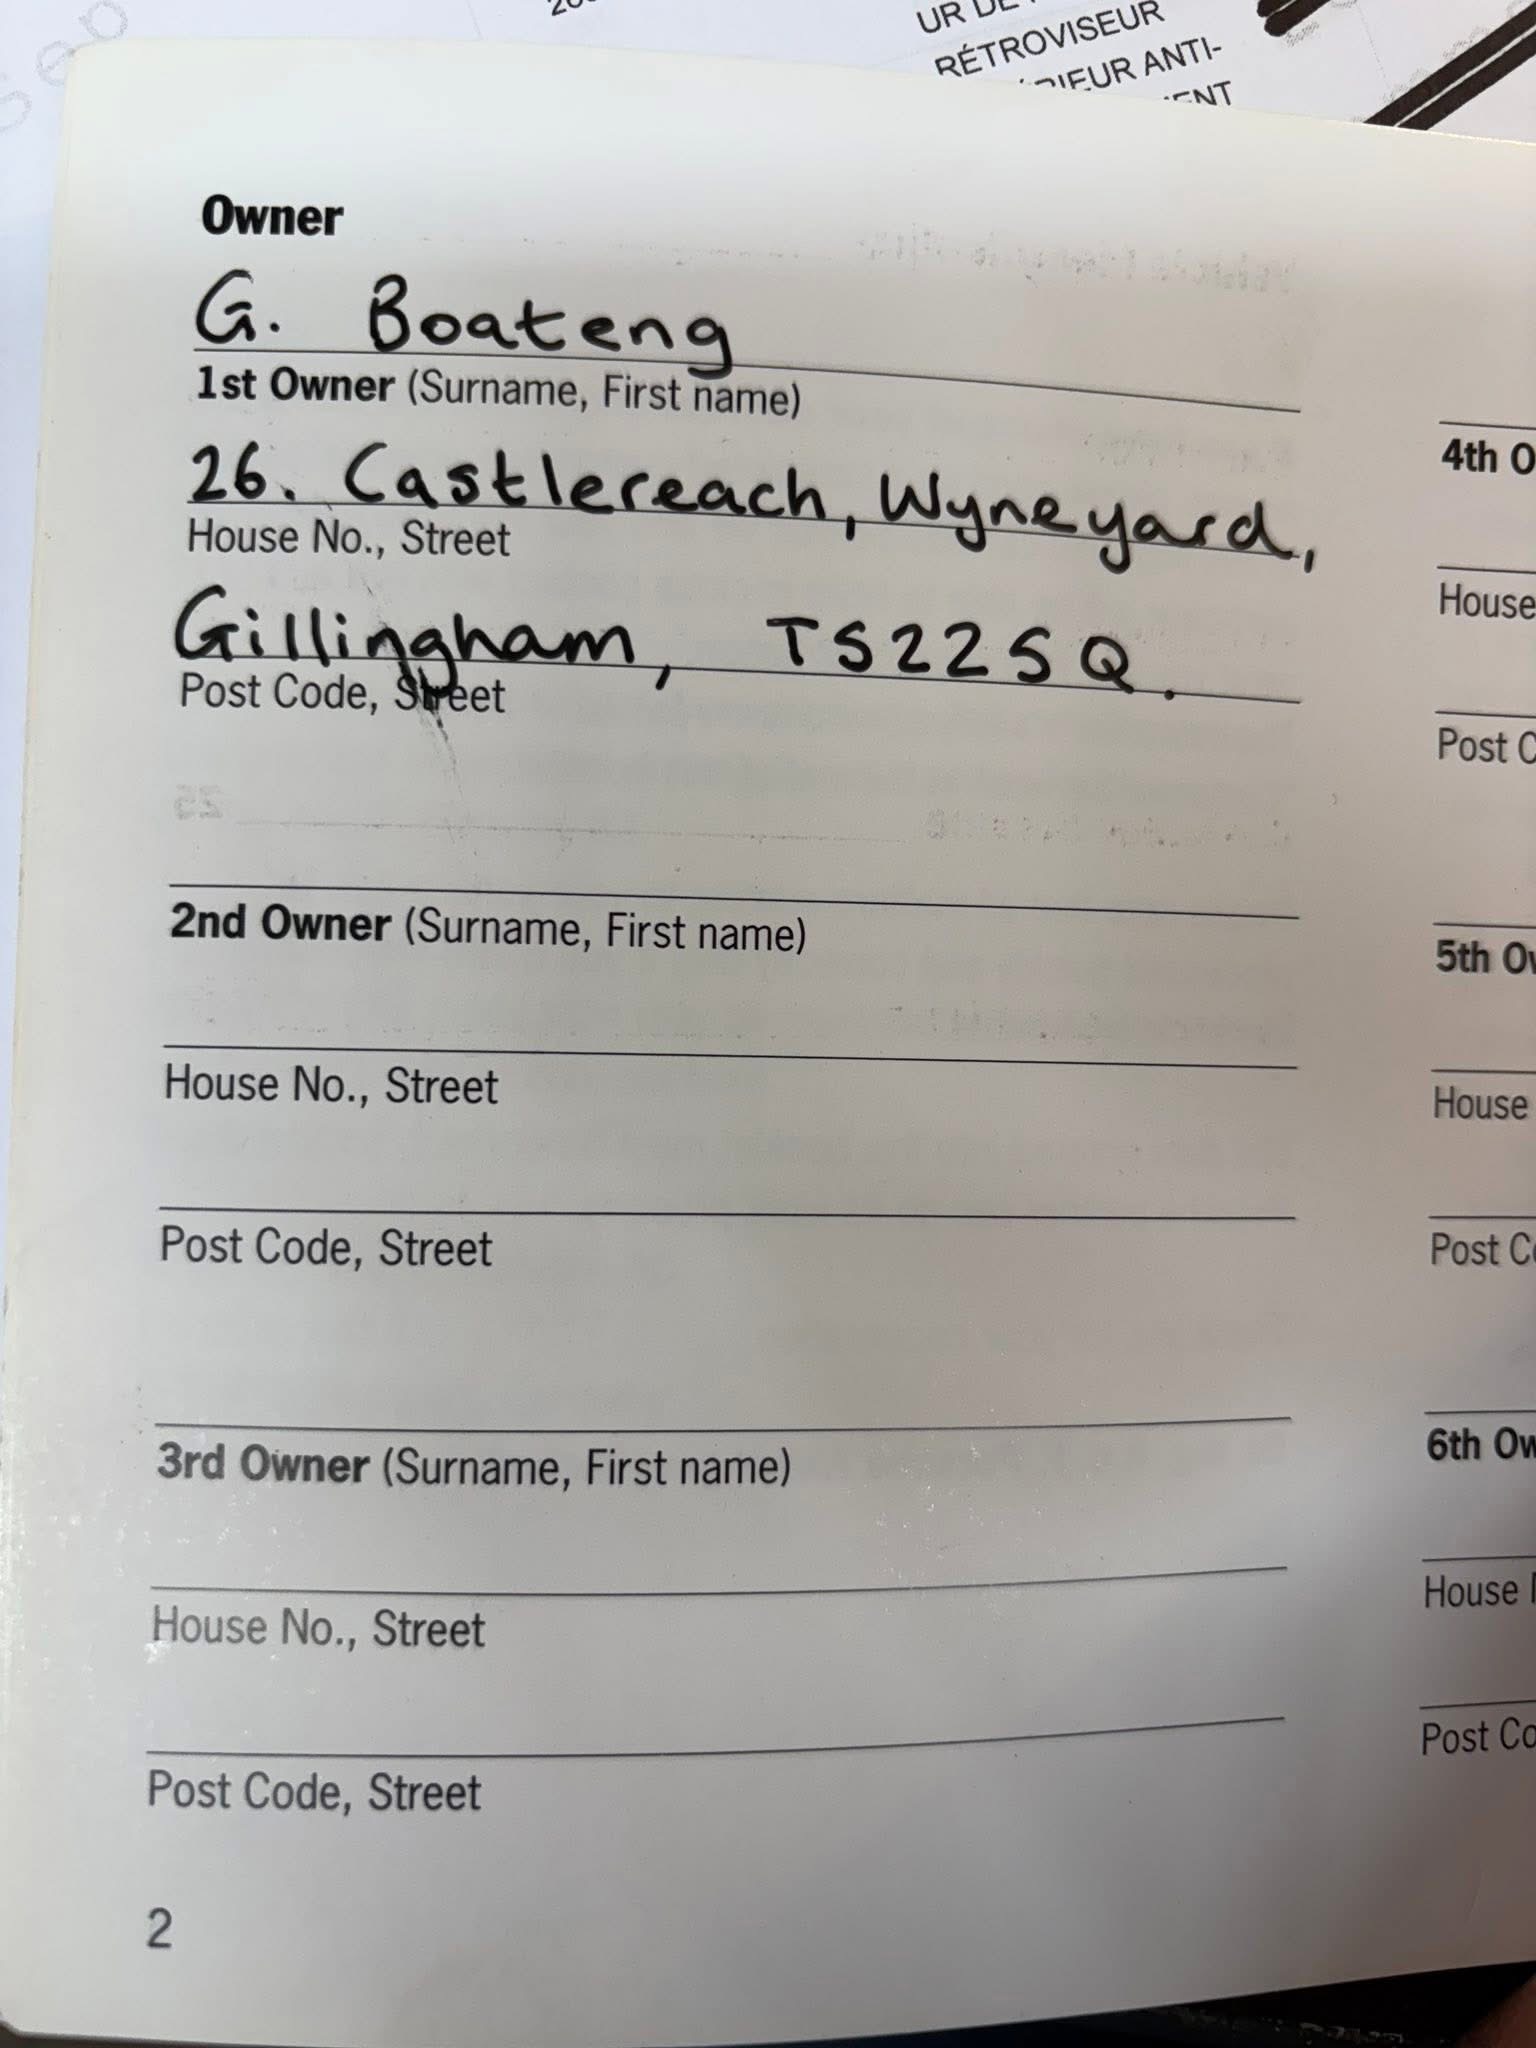 UR DE
RÉTROVISEUR
RIEUR ANTI-
ENT
Owner
G. Boateng
1st Owner (Surname, First name)
26. Castlereach, Wyneyard,
House No., Street
Gillingham, TS22SQ.
Post Code, Street
2nd Owner (Surname, First name)
House No., Street
Post Code, Street
3rd Owner (Surname, First name)
House No., Street
Post Code, Street
2
4th O
House
Post C
5th Ow
House
Post Co
6th Ow
House N
Post Co